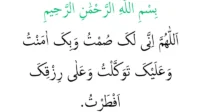 بِسْمِ اللهِ الرَّحْمٰنِ الرَّحِيْمِ
اَللّٰهُمَّ اِنِّی لَکَ صُمْتُ وَبِکَ اٰمَنْتُ
وَعَلَيْکَ تَوَکَّلْتُ وَعَلٰی رِزْقِکَ
اَفْطَرْتُ.